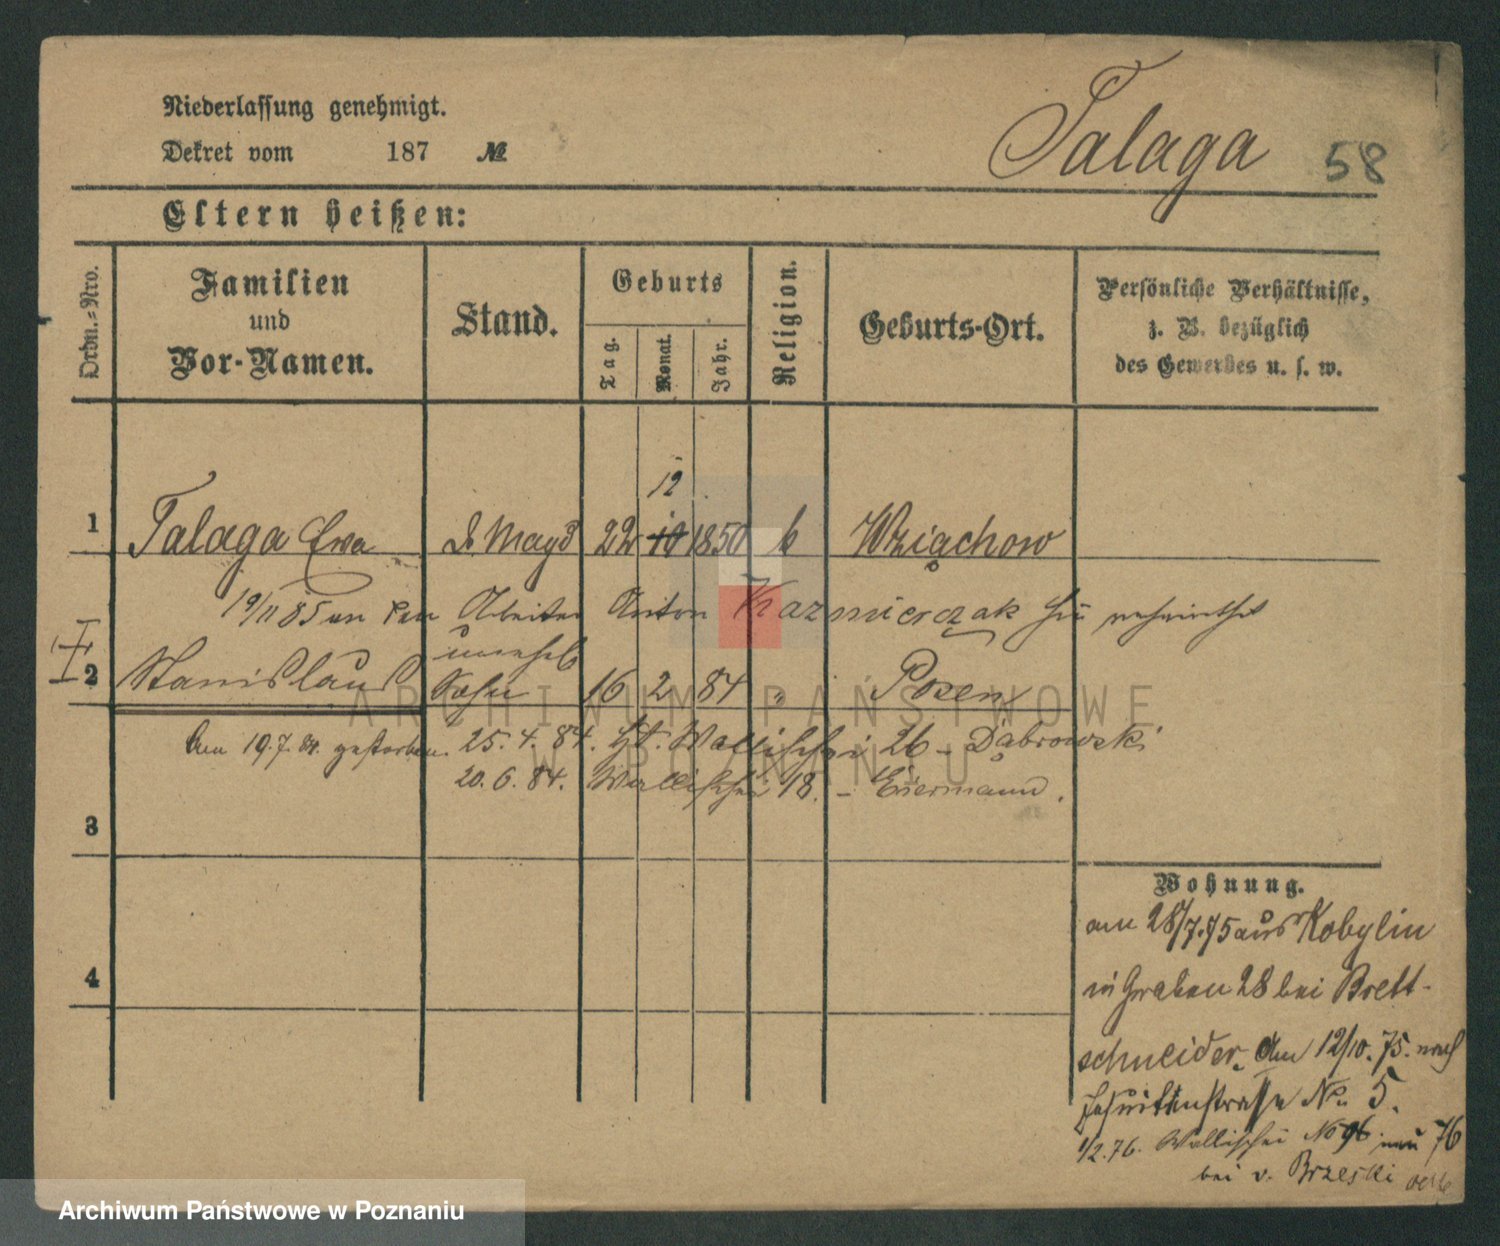 Niederlassung genehmigt.
Dekret vom 187 №
Talaga 58
Eltern heißen:
Ordn.-Nro.
Familien
und
Vor-Namen.
Stand.
Geburts
Tag.
Monat.
Jahr.
Religion.
Geburts-Ort.
Persönliche Verhältnisse,
z. B. bezüglich
des Gewerbes u. s. w.
12
1 Talaga Ewa d. Magd 22 10 1850 k Wziąchow
19/11 85 an den Arbeiter Anton Kazmierczak
unehel
2 Stanislaus Sohn 16 2 84 " Posen
Am 19.7.84. gestorben. 25. 4. 84. Wallischei 26 – Dąbrowski
20. 6. 84. Wallischei 18. – Eiermann.
3
4
Wohnung.
am 28/7.75 aus Kobylin
in Graben 28 bei Brett-
schneider. Am 12/10. 75. nach
Jesuitenstrasse No. 5.
1/2.76. Wallischei No 96. neu 76
bei v. Brzeski
ARCHIWUM PAŃSTWOWE
W POZNANIU
Archiwum Państwowe w Poznaniu